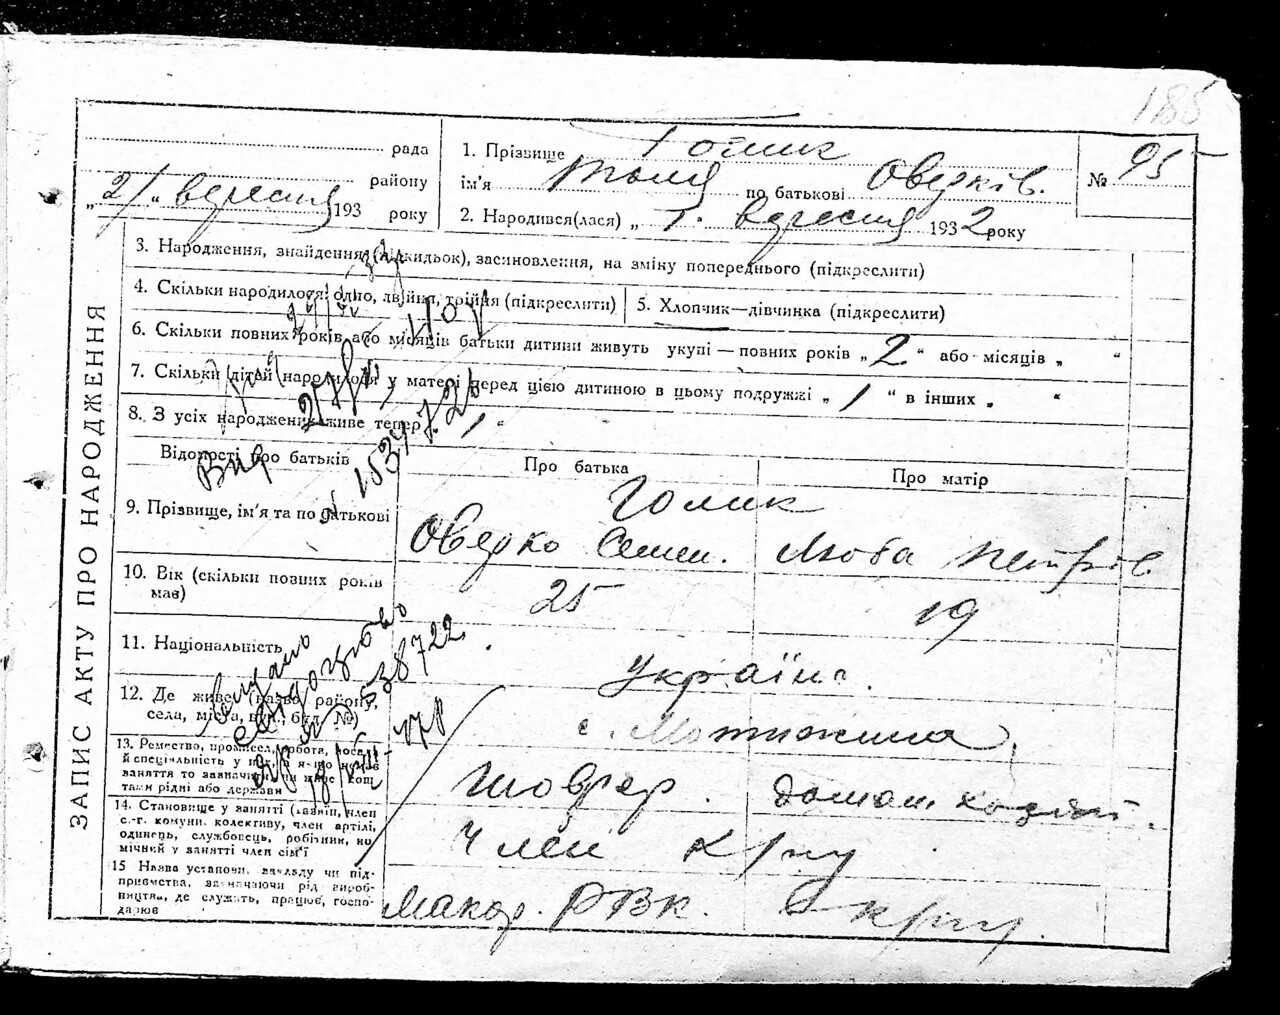 185
рада
району
„21“ вересня 193 року
1. Прізвище Голик
ім'я Толя по батькові Оверків.
2. Народився(лася) „ 1. вересня 1932 року
№ 95
ЗАПИС АКТУ ПРО НАРОДЖЕННЯ
3. Народження, знайдення (підкидьок), засиновлення, на зміну попереднього (підкреслити)
4. Скільки народилося: одно, двійня, трійня (підкреслити)
5. Хлопчик—дівчинка (підкреслити)
6. Скільки повних років або місяців батьки дитини живуть укупі — повних років „ 2 “ або місяців „ “
7. Скільки дітей народилося у матері перед цією дитиною в цьому подружжі „ 1 “ в інших „ “
8. З усіх народжених живе тепер „ 1 “
Відомості про батьків
Про батька
Про матір
9. Прізвище, ім'я та по батькові
Голик
Оверко Семен. Люба Петрів.
10. Вік (скільки повних років має)
25
19
11. Національність
Україн.
12. Де живе (назва району,
села, міста, вул., буд. №)
с. Мотижина
13. Ремество, промисел, робота, посада
й спеціяльність у них, а якщо немає
заняття то зазначити чи живе кош
тами рідні або держави
Шофер. домаш. хозяй.
14. Становище у занятті (хазяїн, член
с.-г. комуни, колективу, член артілі,
одинець, службовець, робітник, по
мічний у занятті член сім'ї
Член
15 Назва установи, закладу чи під-
приємства, зазначаючи рід вироб-
ництва, де служить, працює, госпо-
дарює
Макар. РВК.
Вид
видано
свідоцтво
538722